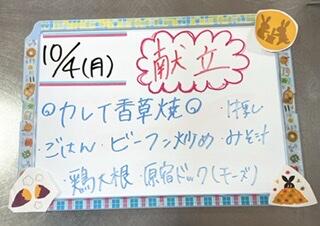 10/4(月) 献立
○カレイ香草焼○
・ごはん・ビーフン炒め・みそ汁
・鶏大根・原宿ドック(チーズ)